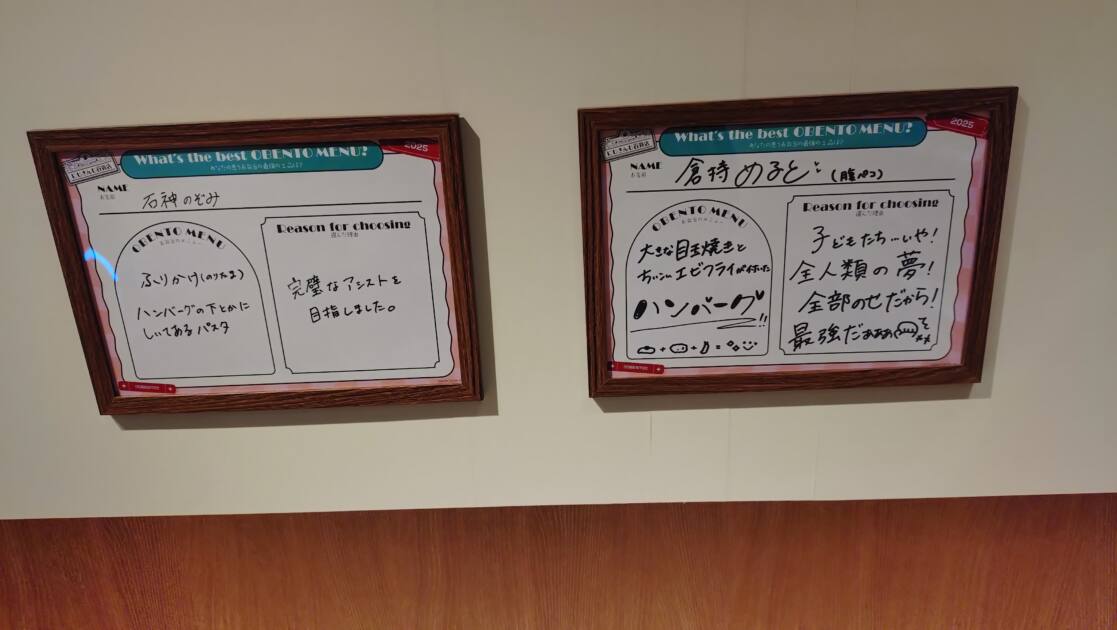 What's the best OBENTO MENU?
あなたの思うお弁当の最強の1品は?
2025
NAME
お名前
石神のぞみ
OBENTO MENU
お弁当のメニュー
ふりかけ(のりたま)
ハンバーグの下とかに
しいてあるパスタ
Reason for choosing
選んだ理由
完璧なアシストを
目指しました。
にじさんじ百貨店
What's the best OBENTO MENU?
あなたの思うお弁当の最強の1品は?
2025
NAME
お名前
倉持めると (腹ペコ)
OBENTO MENU
お弁当のメニュー
大きな目玉焼きと
ちいさいエビフライが付いた
ハンバーグ!!
Reason for choosing
選んだ理由
子どもたち…いや!
全人類の夢!
全部のせだから!
最強だぁぁぁ